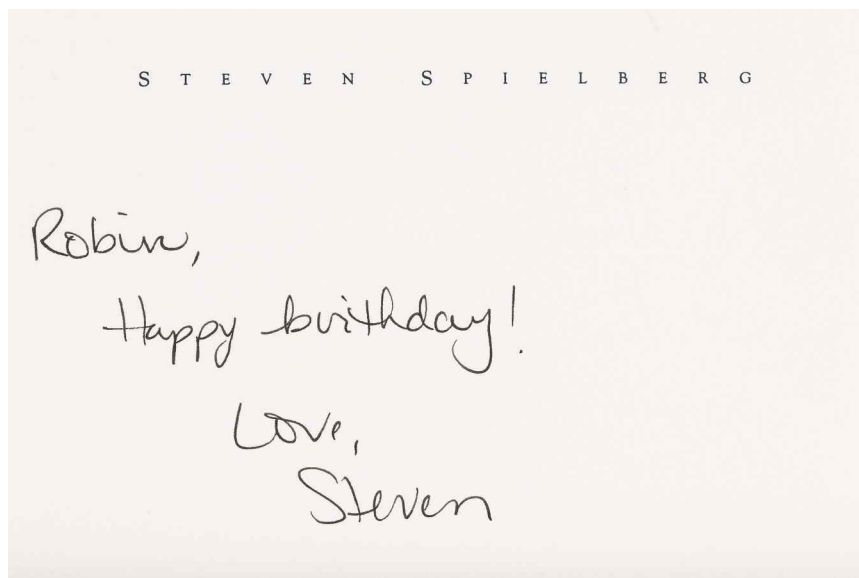 STEVEN SPIELBERG
Robin,
Happy birthday!
Love,
Steven